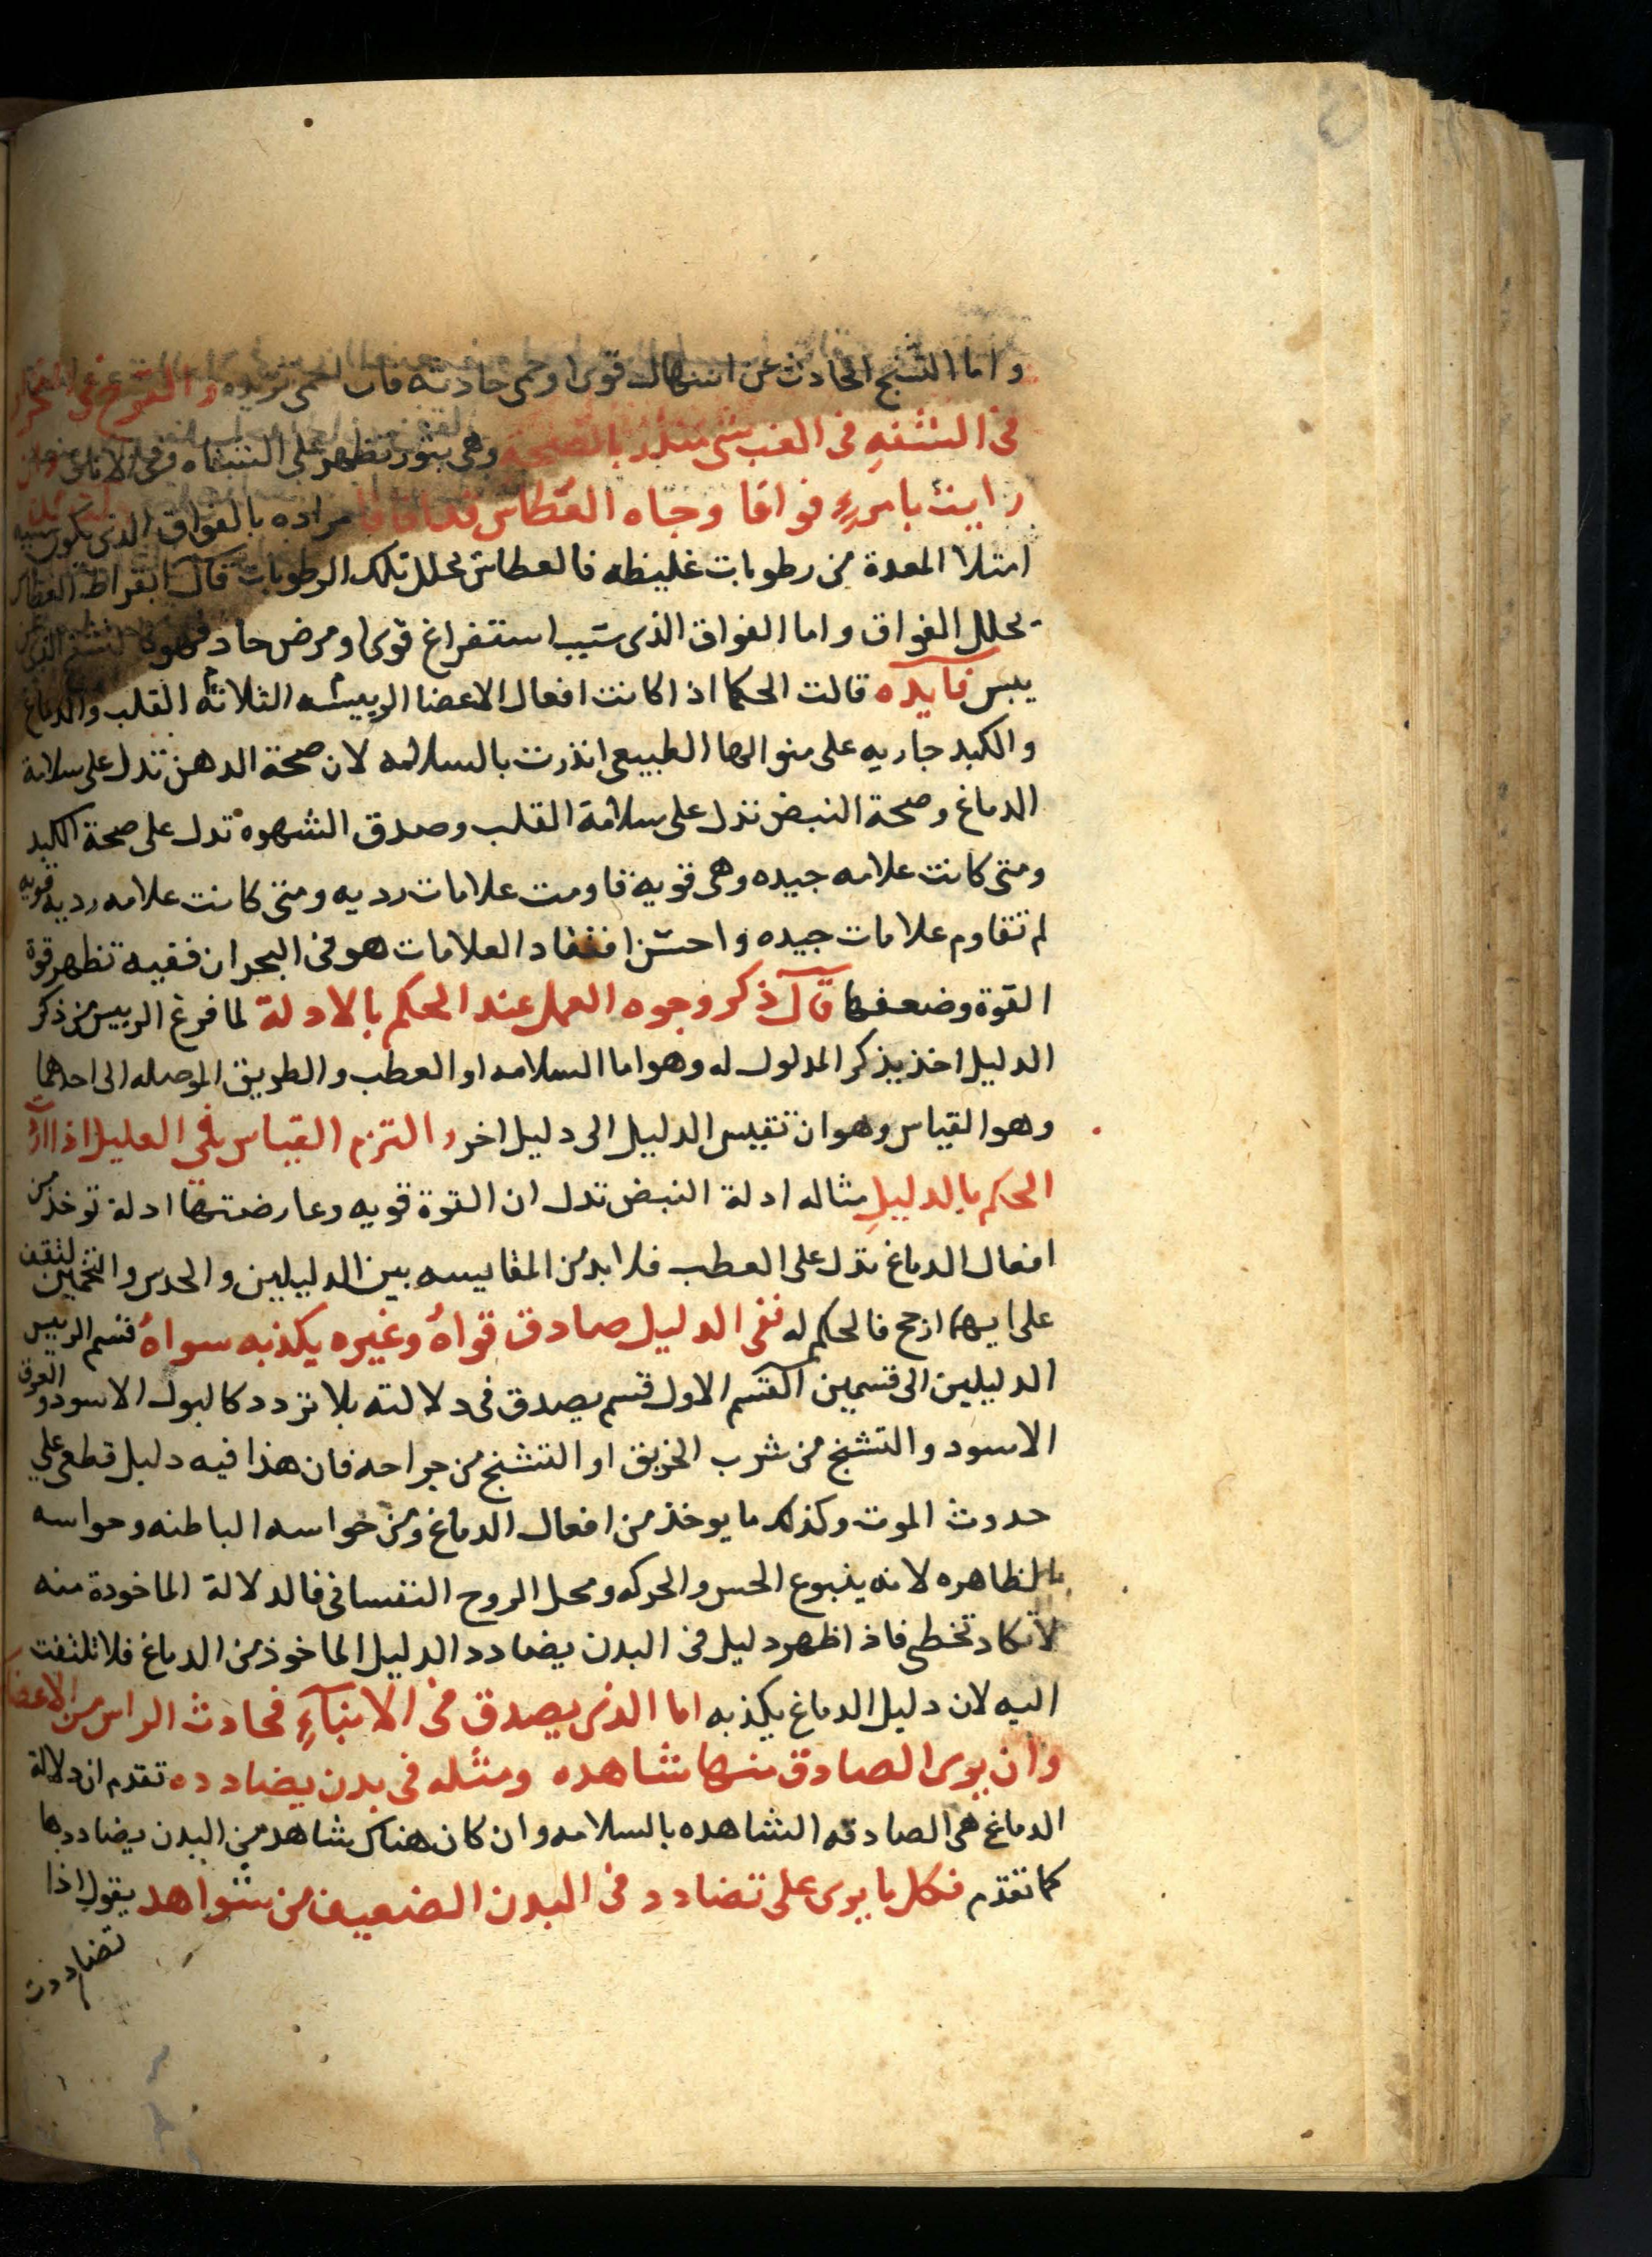 واما التشنج الحادث عن اسهال قوي او حمى حادثة فان الحمى تزيده والقروح في
في الشفه في الغب شي منذر بالصحة وهي بثور تظهر على الشفاه وفي الانف
رايت بامرءٍ فواقا وجاه العطاس مراده بالفواق الذى يكون سببه
امتلا المعدة من رطوبات غليظه فالعطاس يحلل تلك الرطوبات قال ابقراط العطاس
يحلل الفواق واما الفواق الذى سببه استفراغ قوى او مرض حاد فهو
يبس فآيده قالت الحكما اذا كانت افعال الاعضا الرييسه الثلاثه القلب والدماغ
والكبد جاريه على منوالها الطبيعى انذرت بالسلامه لان صحة الدهن تدل على سلامة
الدماغ وصحة النبض تدل على سلامة القلب وصدق الشهوه تدل على صحة الكبد
ومتى كانت علامه جيده وهى قوية قاومت علامات رديه ومتى كانت علامه رديه قويه
لم تقاوم علامات جيده واحسن افتقاد العلامات هو فى البحران ففيه تظهر قوة
القوة وضعفها قال ذكر وجوه العمل عند الحكم بالادلة لما فرغ الرييس من ذكر
الدليل اخذ يذكر المدلول له وهو اما السلامه او العطب والطريق الموصله الى احدهما
وهو القياس وهو ان تقيس الدليل الى دليل اخر والتزم القياس في العليل اذا
الحكم بالدليلِ مثاله ادلة النبض تدل ان القوة قويه وعارضتها ادلة توخذ من
افعال الدماغ تدل على العطب فلا بد من المقايسه بين الدليلين والحدس والتخمين لتقف
على ايهما ارجح فالحكم له ففى الدليل صادق قواهُ وغيره يكذبه سواهُ قسم الرييس
الدليلين الى قسمين القسم الاول قسم يصدق فى دلالته بلا تردد كالبول الاسود والعرق
الاسود والتشنج من شرب الخربق او التشنج من جراحه فان هذا فيه دليل قطعى على
حدوث الموت وكذلك ما يوخذ من افعال الدماغ ومن حواسه الباطنه وحواسه
الظاهره لانه ينبوع الحس والحركه ومحل الروح النفسانى فالدلالة الماخودة منه
لا تكاد تخطى فاذا ظهر دليل فى البدن يضادد الدليل الماخوذ من الدماغ فلا تلتفت
اليه لان دليل الدماغ يكذبه اما الذى يصدق فى الانبآءِ فحادث الراس من الاعضا
وان يرى الصادق منها شاهده ومثله فى بدن يضادده تقدم ان دلالة
الدماغ هى الصادقه الشاهده بالسلامه وان كان هناك شاهد من البدن يضاددها
كما تقدم فكل ما يرى على تضادد فى البدن الضعيف من شواهد يقول اذا
تضاددت